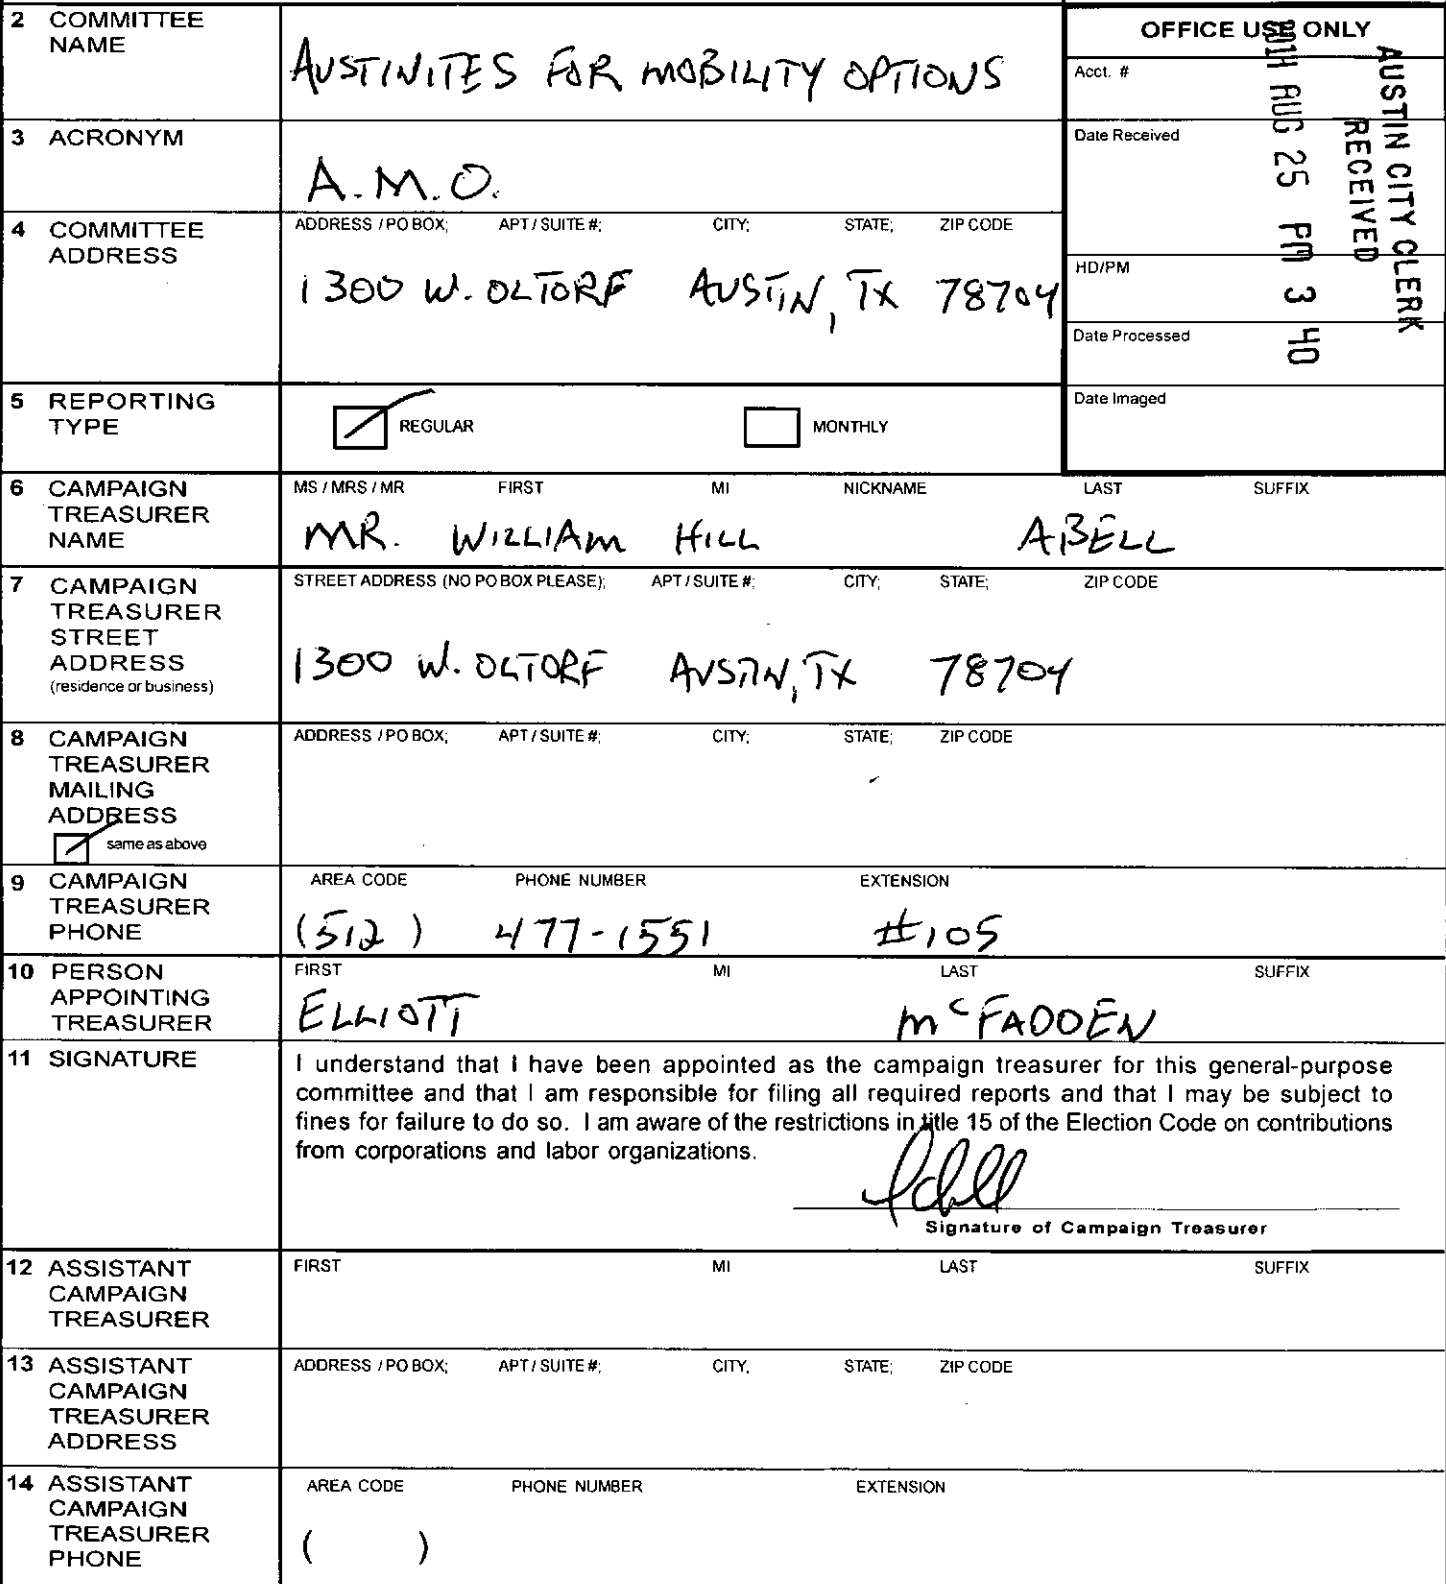 2 COMMITTEE NAME
AUSTINITES FOR MOBILITY OPTIONS
OFFICE USE ONLY
Acct. #
Date Received
HD/PM
Date Processed
Date Imaged
AUSTIN CITY CLERK
RECEIVED
AUG 25 PM 3 40
3 ACRONYM
A.M.O.
4 COMMITTEE ADDRESS
ADDRESS / PO BOX; APT / SUITE #; CITY; STATE; ZIP CODE
1300 W. OLTORF AUSTIN, TX 78704
5 REPORTING TYPE
REGULAR MONTHLY
6 CAMPAIGN TREASURER NAME
MS / MRS / MR FIRST MI NICKNAME LAST SUFFIX
MR. WILLIAM HILL ABELL
7 CAMPAIGN TREASURER STREET ADDRESS
(residence or business)
STREET ADDRESS (NO PO BOX PLEASE); APT / SUITE #; CITY; STATE; ZIP CODE
1300 W. OLTORF AUSTIN, TX 78704
8 CAMPAIGN TREASURER MAILING ADDRESS
same as above
ADDRESS / PO BOX; APT / SUITE #; CITY; STATE; ZIP CODE
9 CAMPAIGN TREASURER PHONE
AREA CODE PHONE NUMBER EXTENSION
(512) 477-1551 #105
10 PERSON APPOINTING TREASURER
FIRST MI LAST SUFFIX
ELLIOTT McFADDEN
11 SIGNATURE
I understand that I have been appointed as the campaign treasurer for this general-purpose
committee and that I am responsible for filing all required reports and that I may be subject to
fines for failure to do so. I am aware of the restrictions in title 15 of the Election Code on contributions
from corporations and labor organizations.
Signature of Campaign Treasurer
12 ASSISTANT CAMPAIGN TREASURER
FIRST MI LAST SUFFIX
13 ASSISTANT CAMPAIGN TREASURER ADDRESS
ADDRESS / PO BOX; APT / SUITE #; CITY; STATE; ZIP CODE
14 ASSISTANT CAMPAIGN TREASURER PHONE
AREA CODE PHONE NUMBER EXTENSION
( )